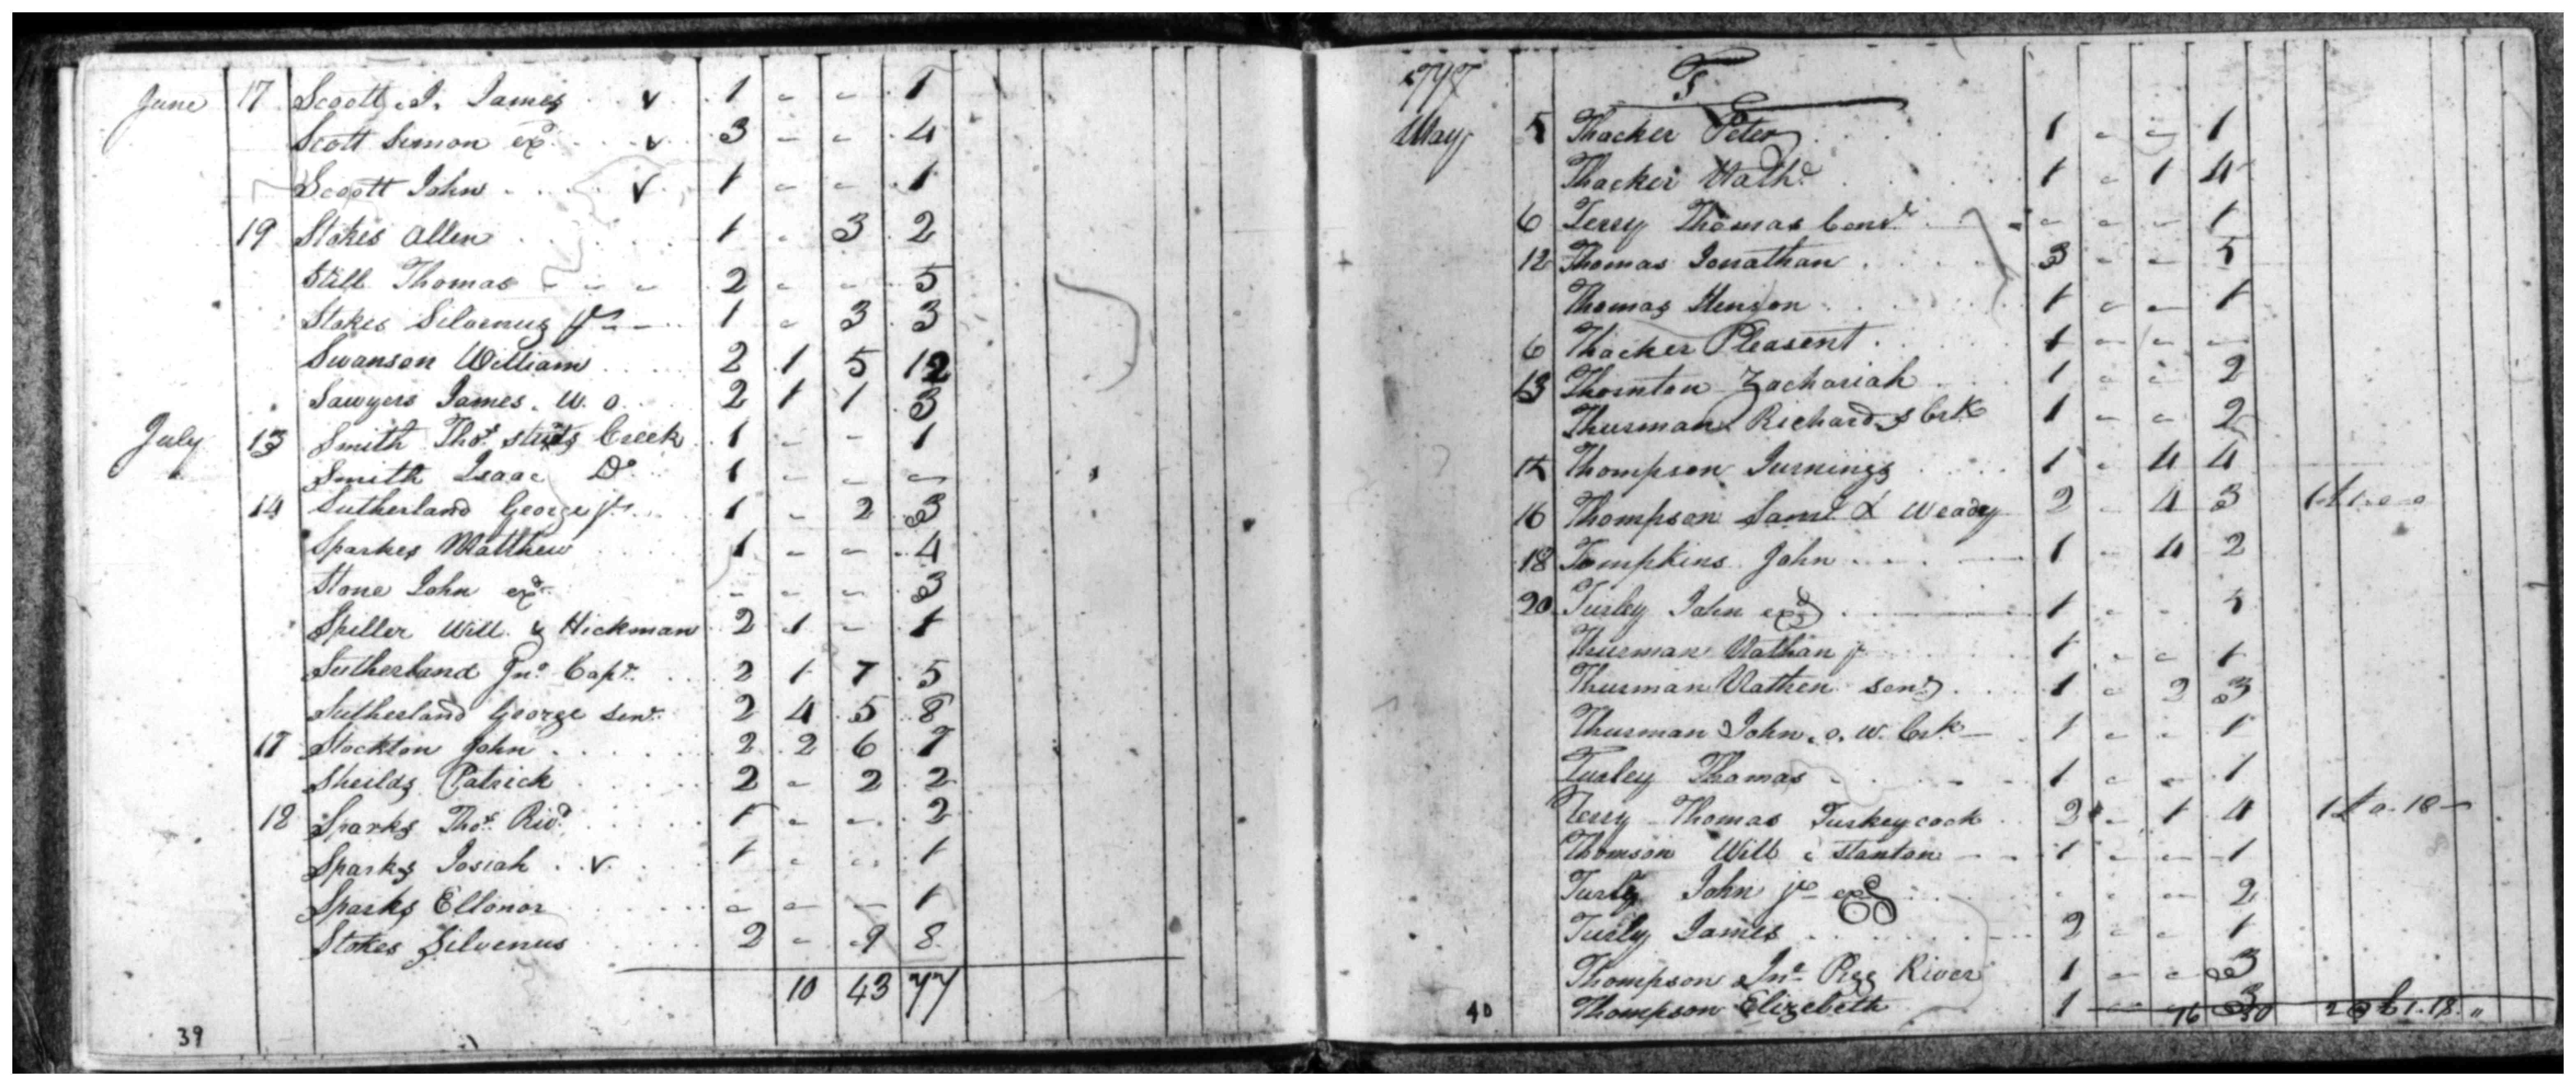 June 17 Scott, J. James v 1 - - 1
Scott Simon exd v 3 - - 4
Scott John v 1 - - 1
19 Stokes Allen 1 - 3 2
Still Thomas 2 - - 5
Stokes Silvenus jr 1 - 3 3
Swanson William 2 1 5 12
Sawyers James. W. o. 2 1 1 3
July 13 Smith Thos Creek 1 - - 1
Smith Isaac Do 1 - - -
14 Sutherland George jr 1 - 2 3
Sparkes Matthew 1 - - 4
Stone John exd - - - 3
Spiller Will. & Hickman 2 1 - 1
Sutherland Jno Capt. 2 1 7 5
Sutherland George senr 2 4 5 8
17 Stockton John 2 2 6 7
Sheilds Patrick 2 - 2 2
18 Sparks Thos Rivr 1 - - 2
Sparks Josiah v 1 - - 1
Sparks Ellonor - - - 1
Stokes Silvenus 2 - 9 8
10 43 77
39
1797 T
May 5 Thacker Peter 1 - - 1
Thacker Nathl 1 - 1 4
6 Terry Thomas Const - - - 1
12 Thomas Jonathan 3 - - 5
Thomas Henson 1 - - 1
6 Thacker Pleasent 1 - - -
13 Thornton Zachariah 1 - - 2
Thurman Richard S Crk 1 - - 2
Thompson Jurnings 1 - 4 4
16 Thompson Saml & Weady 2 - 4 3
18 Tompkins John 1 - 4 2
20 Turley John exd 1 - - 5
Thurman Nathan jr 1 - - 1
Thurman Nathen senr 1 - 2 3
Thurman John. o. W. Crk 1 - - 1
Turley Thomas 1 - - 1
Terry Thomas Turkeycock 2 - 1 4 1 £ 0-18-
Thomson Will c Stanton 1 - - 1
Turly John jr exd - - - 2
Turly James 2 - - 1
Thompson Jno Pigg River 1 - - 3
Thompson Elizebeth 1 - - 3
16 50 2 @ £1.18.,,
40